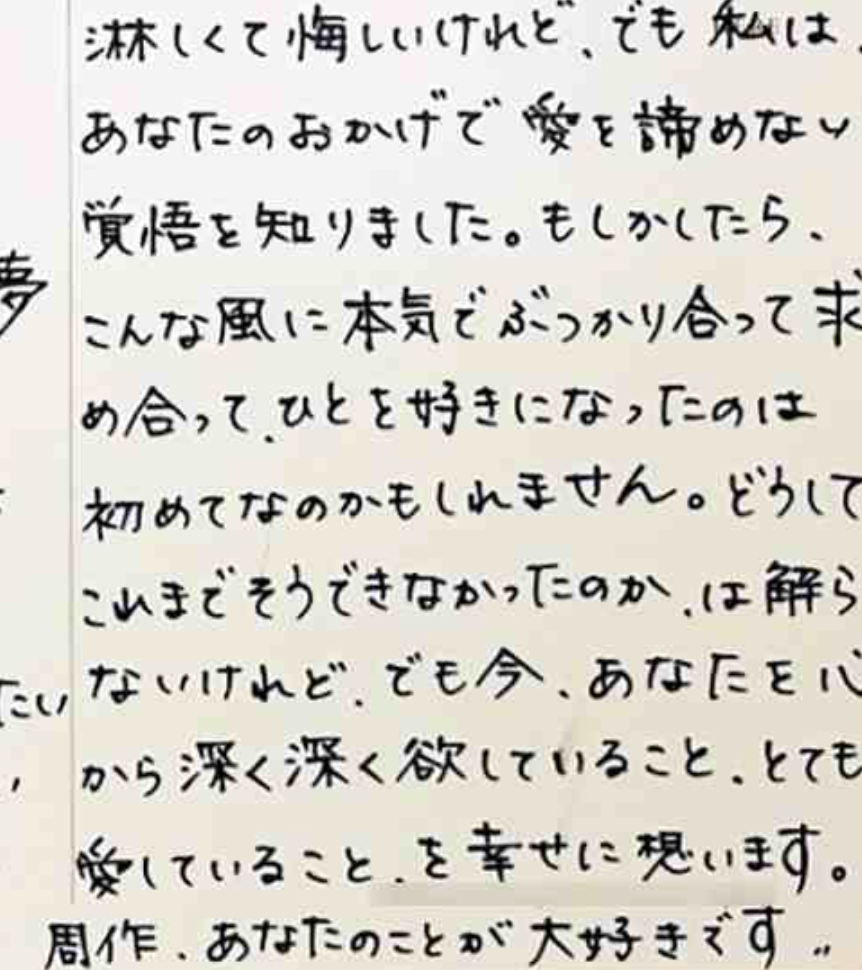 淋しくて悔しいけれど、でも私は、
あなたのおかげで愛を諦めない
覚悟を知りました。もしかしたら、
こんな風に本気でぶつかり合って求
め合って、ひとを好きになったのは
初めてなのかもしれません。どうして
これまでそうできなかったのか、は解ら
ないけれど、でも今、あなたを心
から深く深く欲していること、とても
愛していること、を幸せに想います。
周作、あなたのことが大好きです..
夢
たい